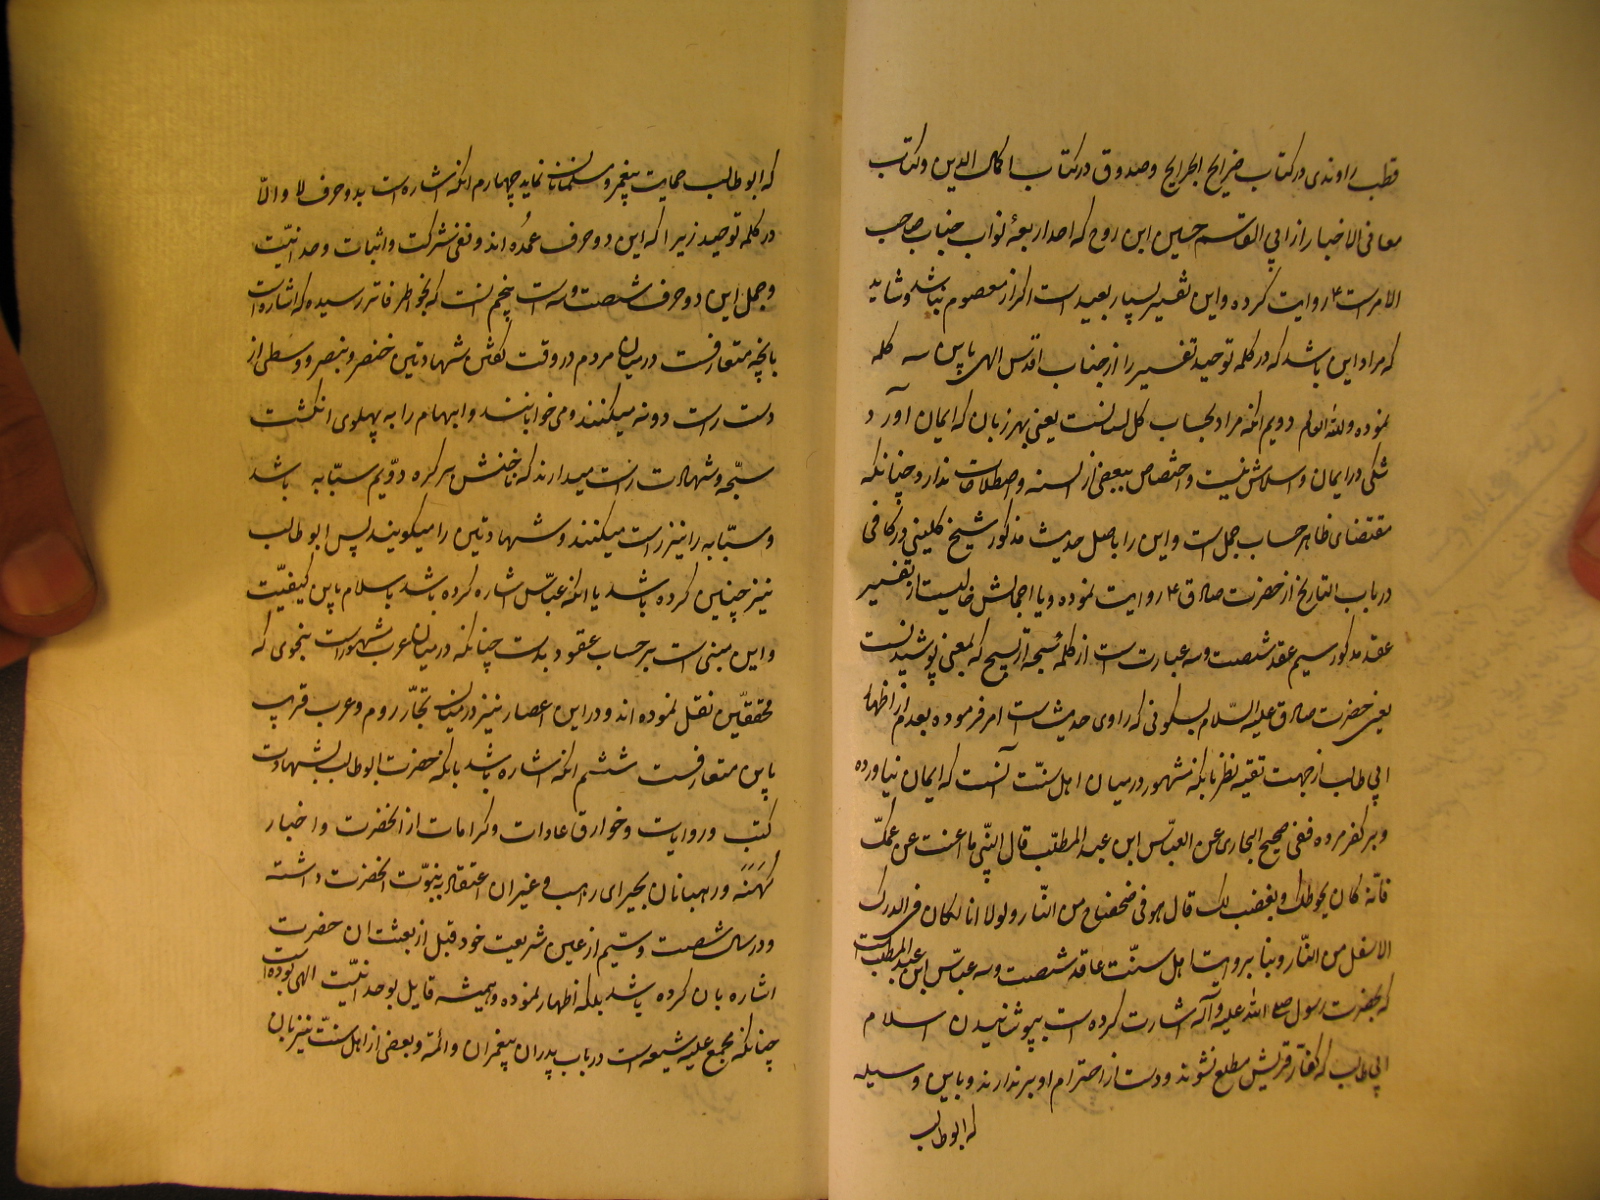 قطب راوندی در کتاب خرایج الجرایح و صدوق در کتاب اکمال الدین و کتاب
معانی الاخبار از ابی القاسم حسین ابن روح که احد اربعهٔ نواب جناب صاحب
الامر است ۴ روایت کرده و این تفسیر بسیار بعید است اگر از معصوم نباشد و شاید
که مراد این باشد که در کلمه توحید تفسیر را از جناب اقدس الهی باین سه کلمه
نموده و الله العالم دویم آنکه مراد بحساب کل لسانست یعنی بهر زبان که ایمان آورد
شکی در ایمان و اسلامش نیست و اختصاص ببعضی از السنه و اصطلاحات ندارد چنانکه
مقتضای ظاهر حساب جمل است و این را باصل حدیث مذکور شیخ کلینی در کافی
در باب التاریخ از حضرت صادق ۴ روایت نموده و یا اجمالش خالیست از تفسیر
عقد مذکور سیم عقد شصت و سه عبارت است از کلمه سبحه از تسبیح که بمعنی پوشیدنست
یعنی حضرت صادق علیه السّلام بسکونی که راوی حدیث است امر فرموده بعدم از اظهار
ابی طالب از جهت تقیه نظر بانکه مشهور در میان اهل سنّت آنست که ایمان نیاورده
و بر کفر مرده ففی صحیح البخاری عن العبّاس ابن عبد المطلب قال النّبی ما اغنت عن عمّک
فانّه کان یحوطک و یغضب لک قال هو فی ضحضاح من النّار و لولا انا لکان فی الدرک
الاسفل من النّار و بنا بروایت اهل سنّت عاقد شصت و سه عبّاس ابن عبد المطلب است
که بحضرت رسول صلی الله علیه و آله اشارت کرده است بپوشانیدن اسلام
ابی طالب که کفّار قریش مطلع نشوند و دست از احترام او برندارند و باین وسیله
که ابو طالب
که ابو طالب حمایت پیغمبر و مسلمانان نماید چهارم آنکه اشاره است بدو حرف لا و الّا
در کلمه توحید زیرا که این دو حرف عمدُه اند و نفی شرکت و اثبات وحدانیّت
و جمل این دو حرف شصت و سه است پنجم آنست که بخواطر فاتر رسیده که اشاره است
بانچه متعارفست در میان مردم در وقت گفتن شهادتین خنصر و بنصر و وسطی از
دست راست دو نه میکنند و می خوابانند و ابهام را به پهلوی انگشت
سبّحه و شهادت راست میدارند که ناخنش سر گره دوّیم سبّابه باشد
و سبّابه را نیز راست میکنند و شهادتین را میکویند پس ابو طالب
نیز چنین کرده باشد یا آنکه عبّاس اشاره کرده باشد باسلام باین کیفیّت
و این مبنی است بر حساب عقود بدست چنانکه در میان عرب مشهور است بنحوی که
محققین نقل نموده اند و در این اعصار نیز در میان تجّار روم و عرب قریب
باین متعارفست ششم آنکه اشاره باشد بانکه حضرت ابو طالب بشهادت
کتب و روایات و خوارق عادات و کرامات از آنحضرت و اخبار
کَهَنَه و رهبانان بحیرای راهب و غیر ان اعتقاد به نبوّت آنحضرت داشته
و در سال شصت و سیّم از عین شریعت خود قبل از بعثت ان حضرت
اشاره بان کرده باشد بلکه اظهار نموده و همیشه قایل بوحدانیّت الهی بوده است
چنانکه مجمع علیه شیعه است در باب پدران پیغمبران و ائمّه و بعضی از اهل سنّت نیز بان